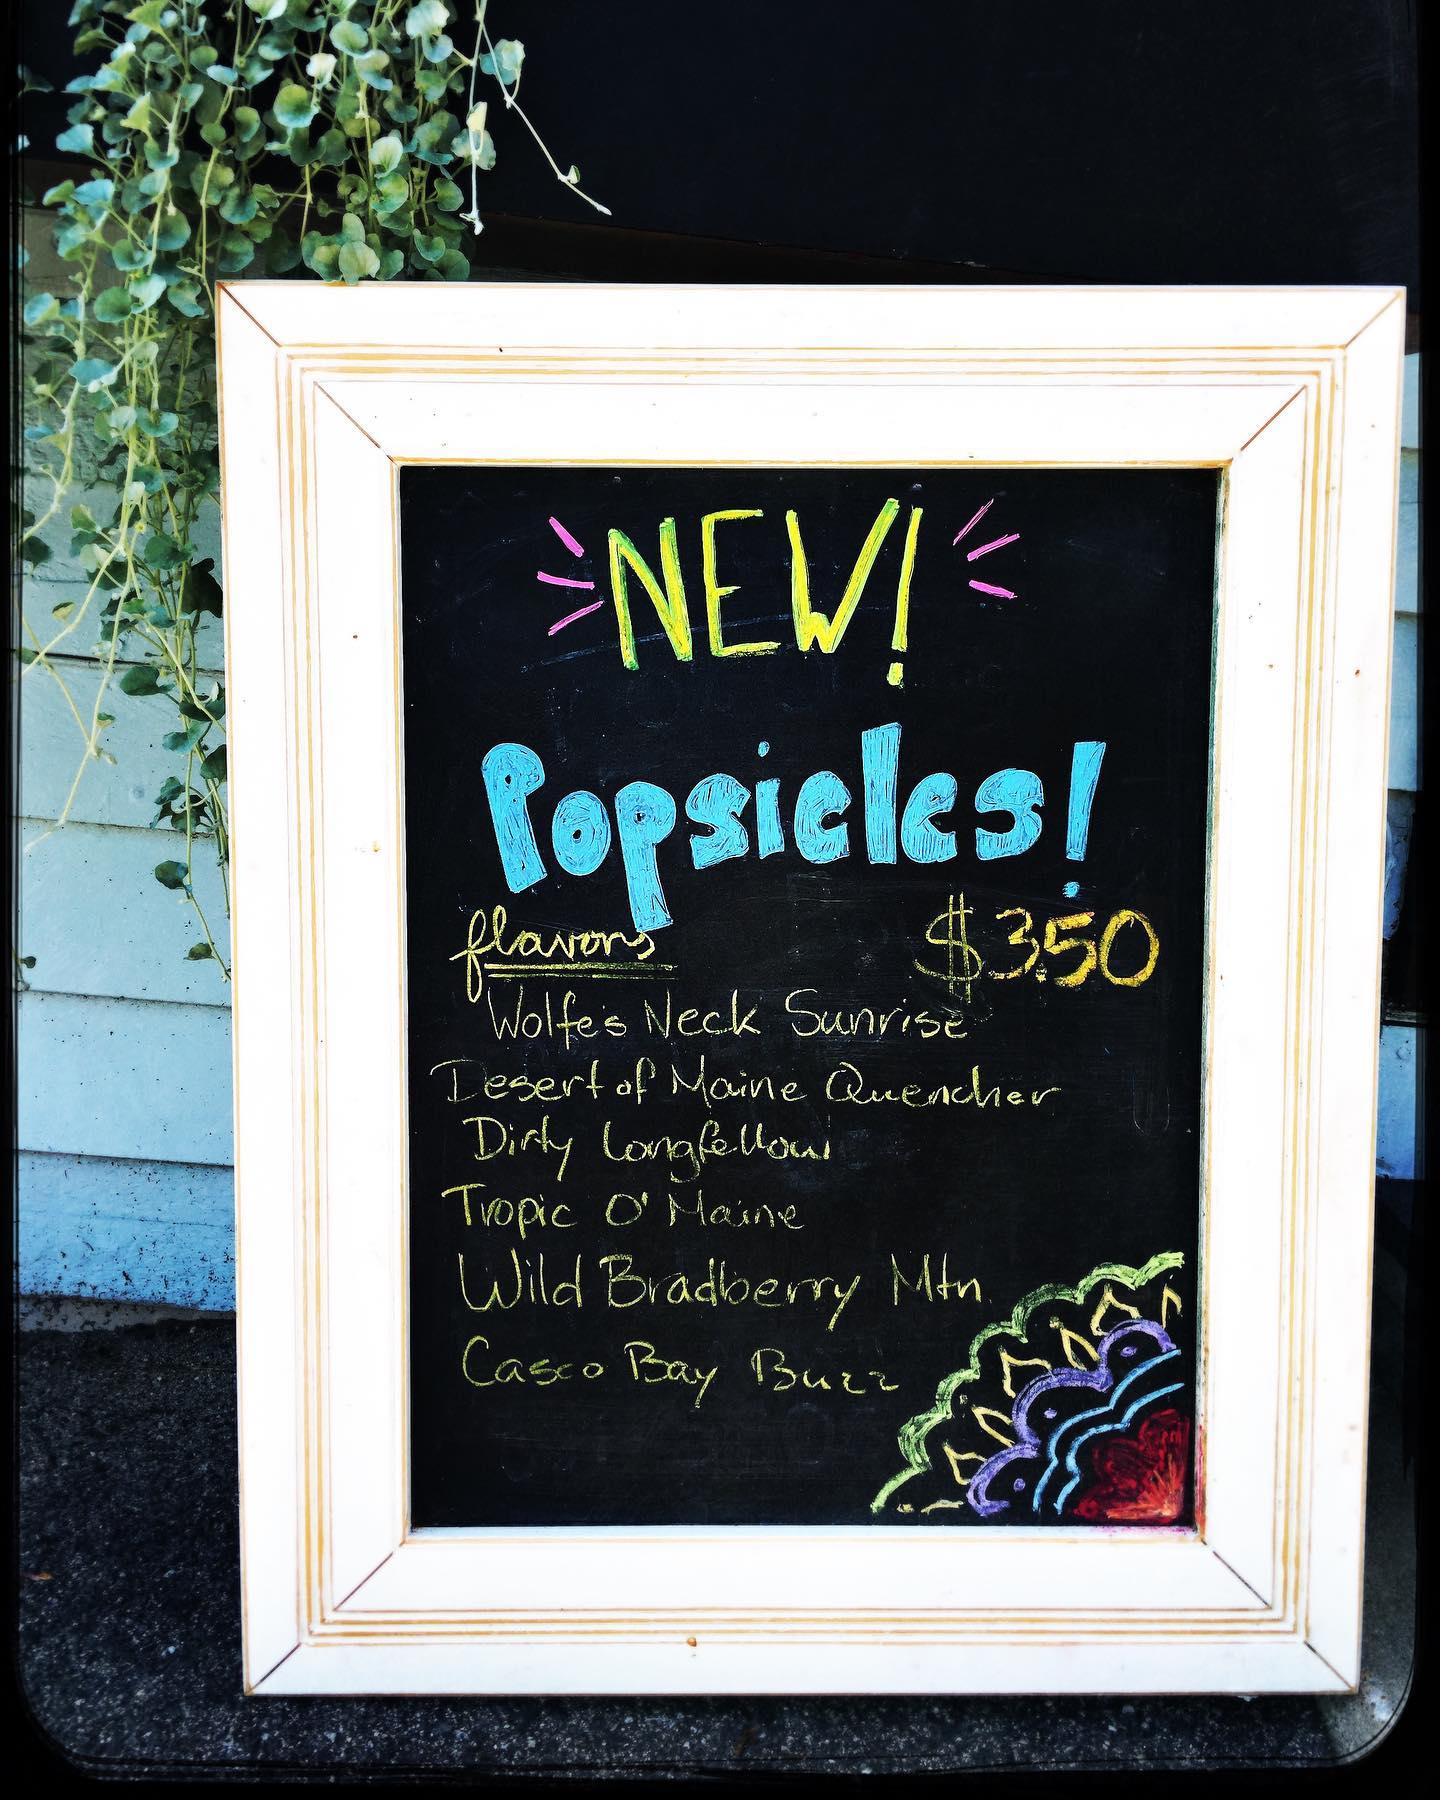 NEW!
Popsicles!
flavors $3.50
Wolfe's Neck Sunrise
Desert of Maine Quencher
Dirty Longfellow
Tropic O' Maine
Wild Bradberry Mtn.
Casco Bay Buzz